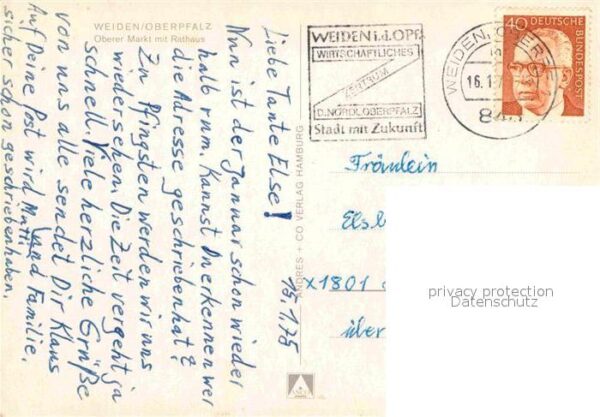 WEIDEN/OBERPFALZ
Oberer Markt mit Rathaus
15.1.75
Liebe Tante Else!
Nun ist der Januar schon wieder
halb rum. Kannst Du erkennen wer
die Adresse geschrieben hat?
Zu Pfingsten werden wir uns
wiedersehen. Die Zeit vergeht ja
schnell. Viele herzliche Grüße
von uns alle sendet Dir Klaus
und Familie.
Auf Deine Post wird Mutti
sicher schon geschrieben haben.
ANDRES + CO VERLAG HAMBURG
WEIDEN i.d.OPf.
WIRTSCHAFTLICHES
ZENTRUM
D.NÖRDL.OBERPFALZ
Stadt mit Zukunft
WEIDEN, OBERPF
16.1.7
40
DEUTSCHE
BUNDESPOST
Fräulein
Elsb
X1801
über
privacy protection
Datenschutz